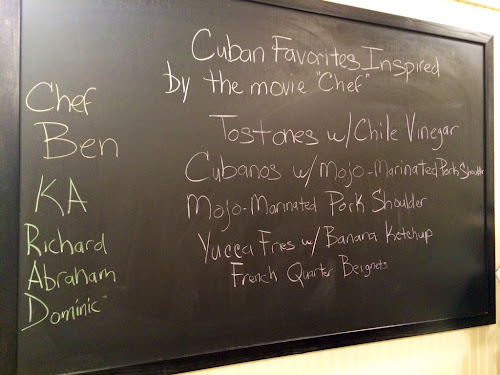 Cuban Favorites Inspired
by the movie "Chef"
Tostones w/Chile Vinegar
Cubanos w/Mojo-Marinated Pork Shoulder
Mojo-Marinated Pork Shoulder
Yucca Fries w/ Banana Ketchup
French Quarter Beignets
Chef
Ben
KA
Richard
Abraham
Dominic